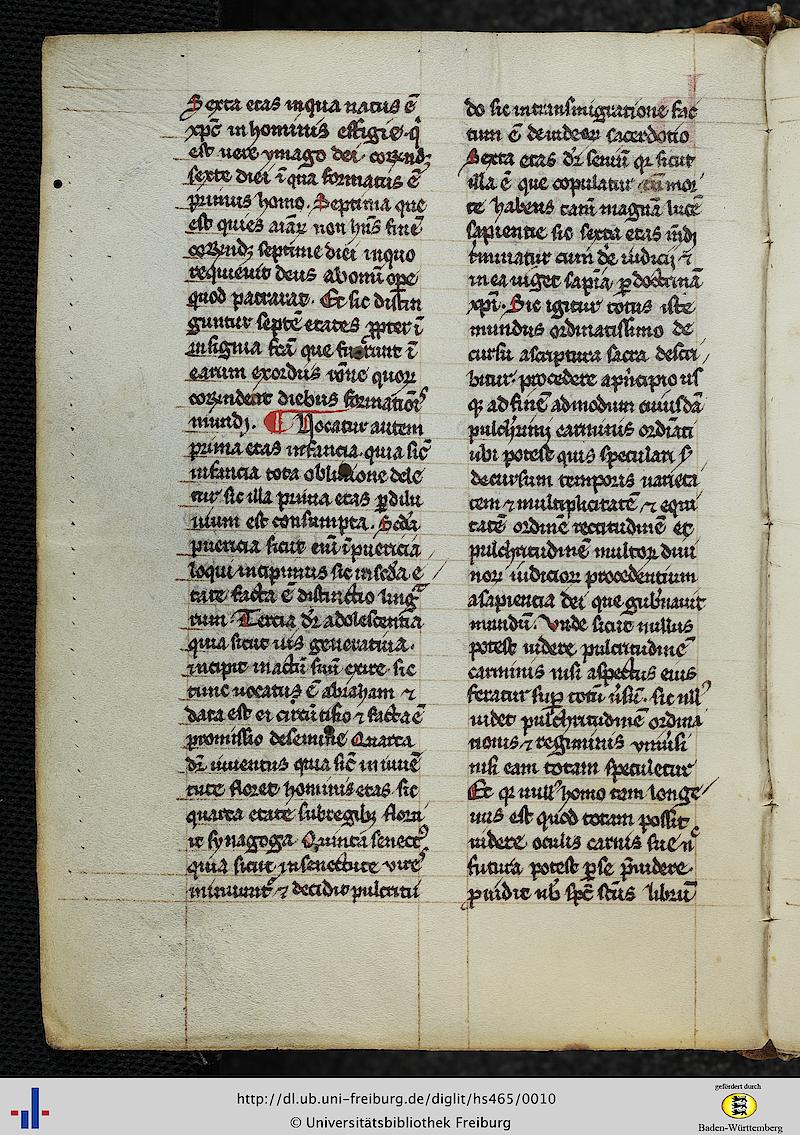 Sexta etas in qua natus ē
xp̄c in hominis effigie. q̇
est uere ymago dei. corrn̄dꝫ
sexte diei ī qua formatus ē
primus homo. Septima que
est quies aīaꝝ non hn̄s finē
corrn̄dꝫ septime diei in quo
requieuit deus ab om̄i ope
quod patrarat. Et sic distin
guntur septē etates ꝓpter ī
insignia fcā que fuerunt ī
earum exordiis rōne quoꝝ
corrn̄dent diebus formationis
mundj. ¶ Uocatur autem
prima etas infancia. quia sic̄
infancia tota obliuione dele
tur sic illa prima etas ꝑ dilu
uium est consumpta. Scd̄a
puericia sicut eni ī puericia
loqui incipimus sic in scd̄a e
tate facta ē distinctio lingᵃ
rum. Tercia dr̄ adolescentia
quia sicut uis generatiua.
incipit in actū suū exire. sic
tunc uocatus ē abraham ⁊
data est ei circūcisio ⁊ facta ē
promissio de semine Quarta
dr̄ iuuentus quia sic̄ in iuuē
tute floret hominis etas. sic
quarta etate sub regibꝫ floru
it synagoga. Quinta senect᾿
quia sicut in senectute uires
minuunt᾿ ⁊ decidit pulcritu
do sic in transmigratione fac
tum ē de iudeoꝝ sacerdotio
Sexta etas dr̄ seniū qꝛ sicut
illa ē que copulatur cū mor
te habens tam̄ magnā lucē
sapientie sic sexta etas mūdj
t̄minatur cum die iudicij ⁊
in ea uiget sapīa ꝑ doctrinā
xp̄i. Sic igitur totus iste
mundus ordinatissimo de
cursu a scriptura sacra descri
bitur. procedere a pͥncipio us
qꝫ ad finē ad modum cuiusdā
pulcħrimj carminis ordīati
ubi potest quis speculari ẜ
decursum temporis uarieta
tem ⁊ multiplicitatē ⁊ equi
tatē ordinē rectitudinē et
pulchritudinē multoꝝ diui
noꝝ iudicioꝝ procedentium
a sapientia dei que gub̄nauit
mundū. Vnde sicut nullus
potest uidere pulcritudinē
carminis nisi aspectus eius
feratur suꝑ totū u̓sū. sic null᾿
uidet pulchritudinē ordina
tionis ⁊ regiminis vniu̓si
nisi eam totam speculetur
Et qꝛ null᾿ homo tam longe
uus est quod totam possit
uidere oculis carnis sue n̄
futura potest ꝑ se p̄uidere.
ꝓuidit nob̄ sp̄c sc̄us librū
http://dl.ub.uni-freiburg.de/diglit/hs465/0010
© Universitätsbibliothek Freiburg
gefördert durch
Baden-Württemberg